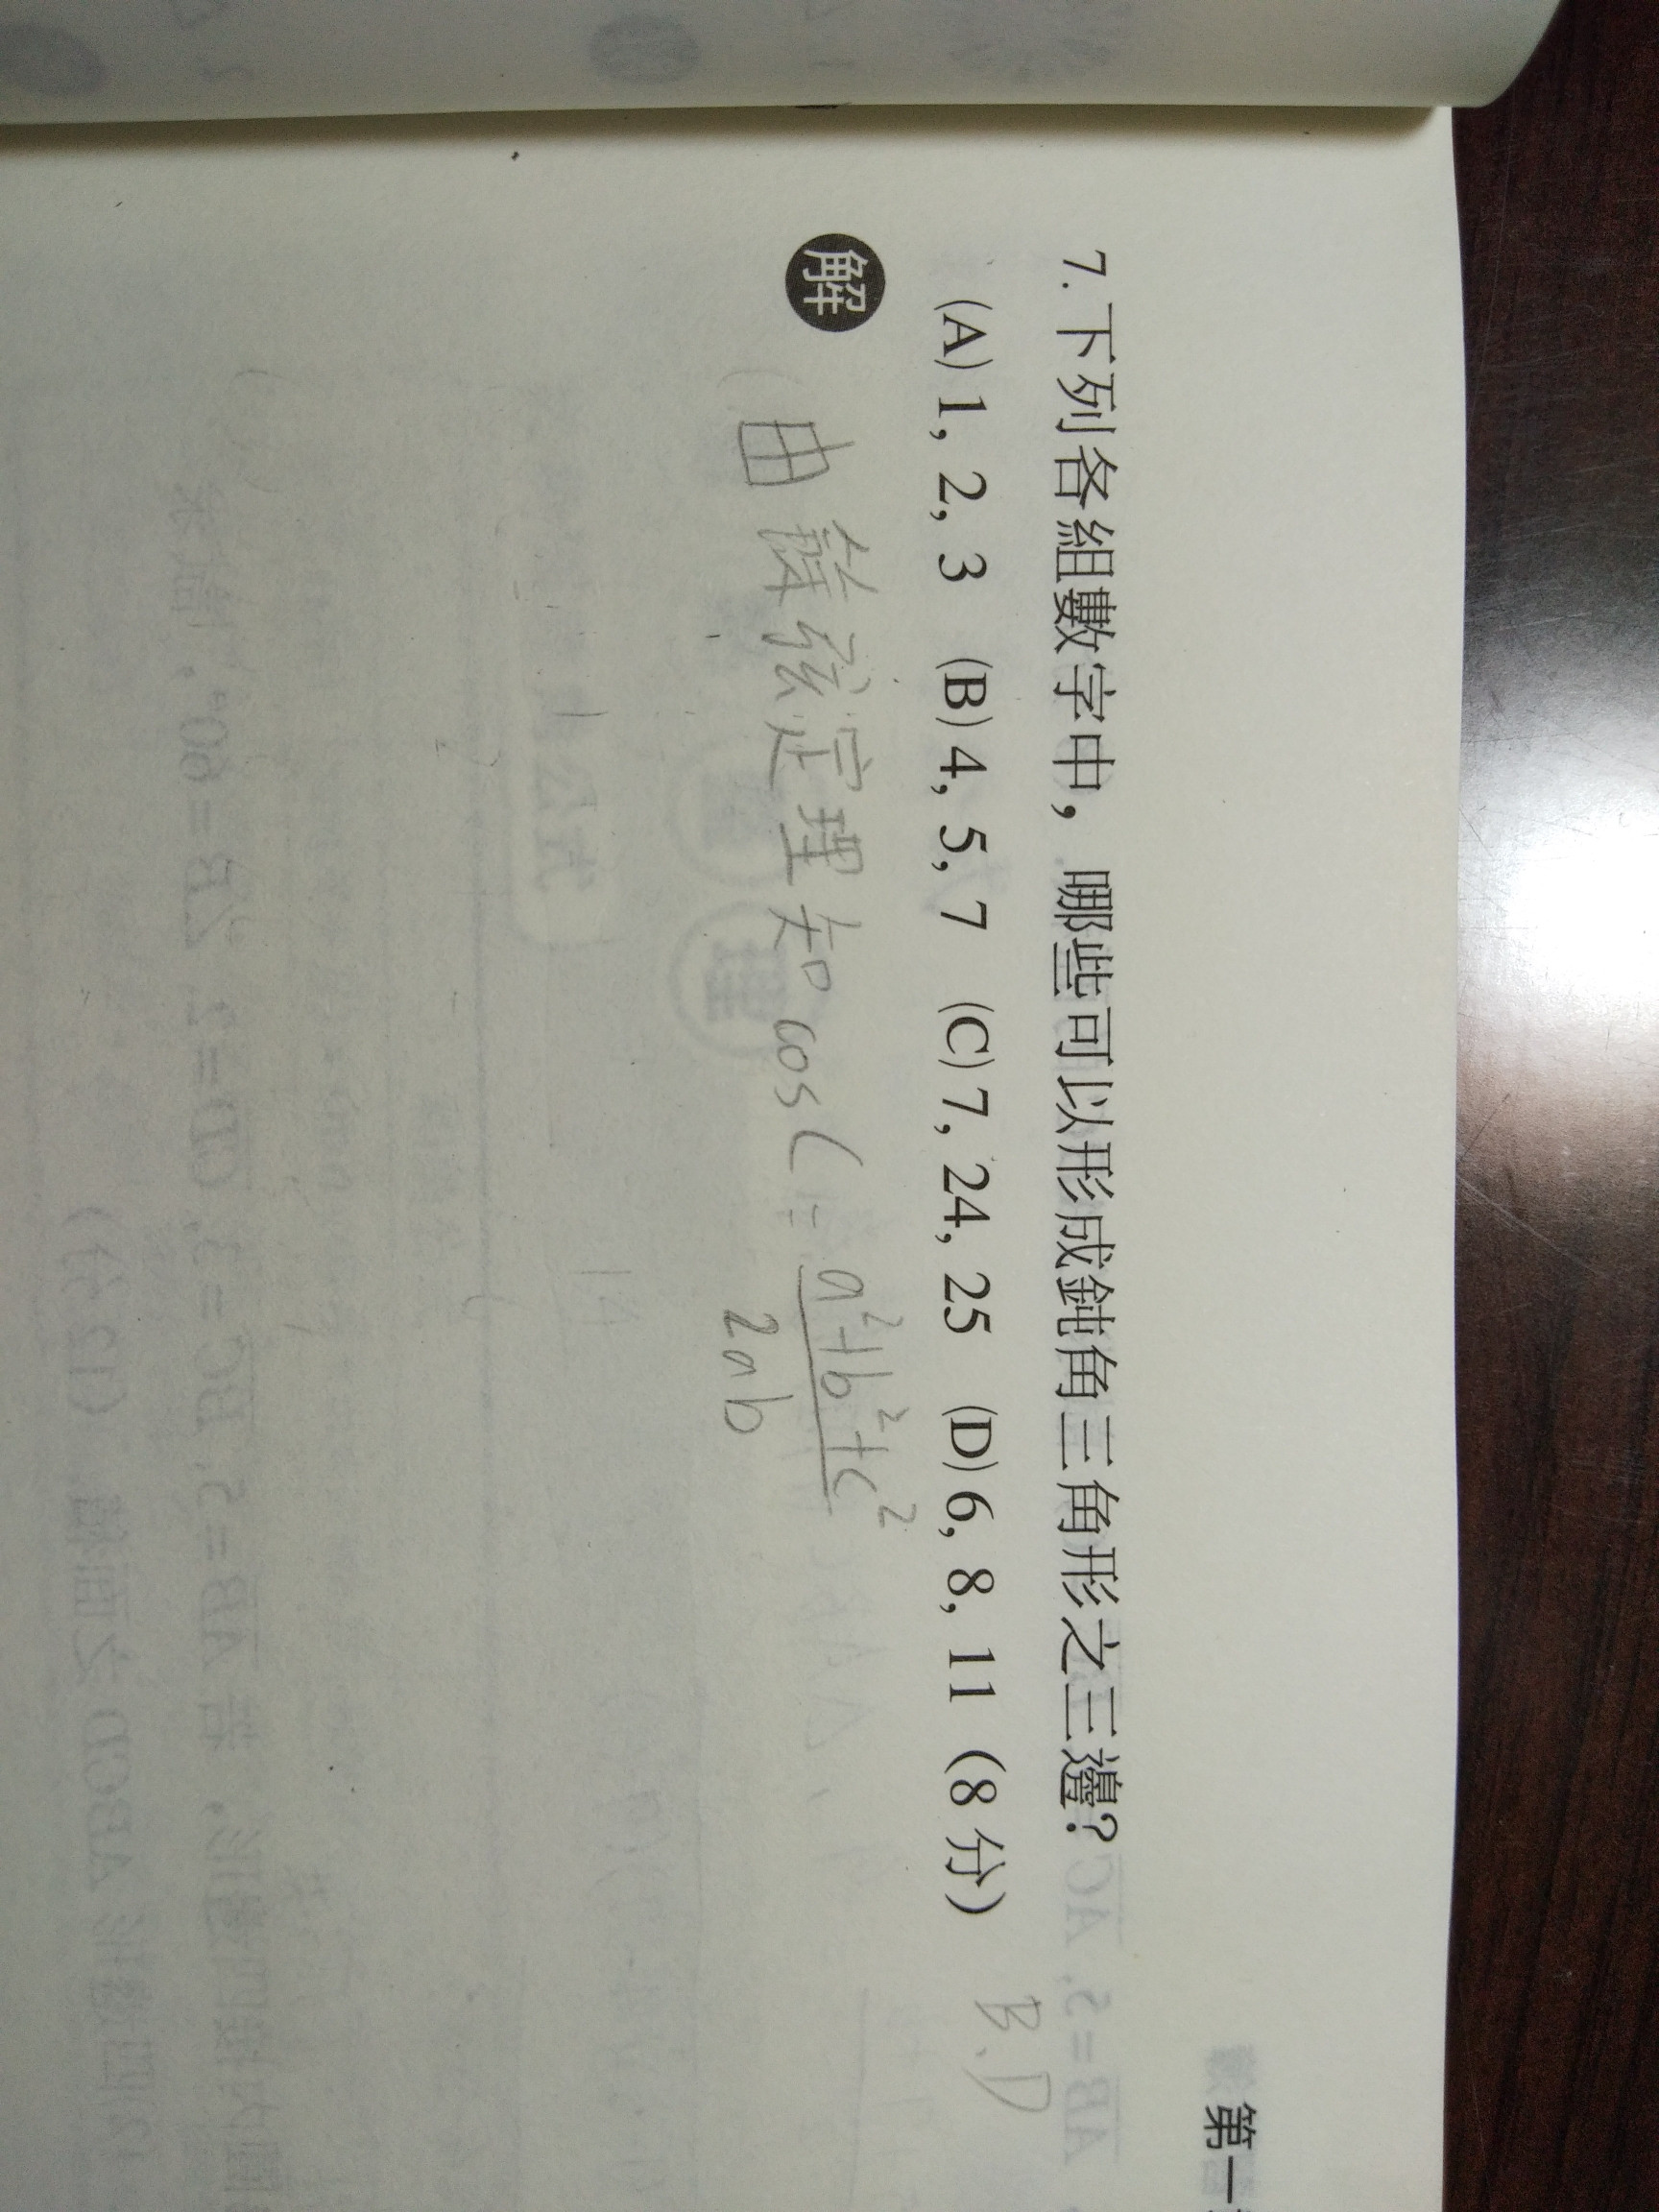 第一
7. 下列各組數字中，哪些可以形成鈍角三角形之三邊？
(A) 1, 2, 3 (B) 4, 5, 7 (C) 7, 24, 25 (D) 6, 8, 11（8 分） B、D
解
由餘弦定理知 cos C = a²+b²+c² / 2ab